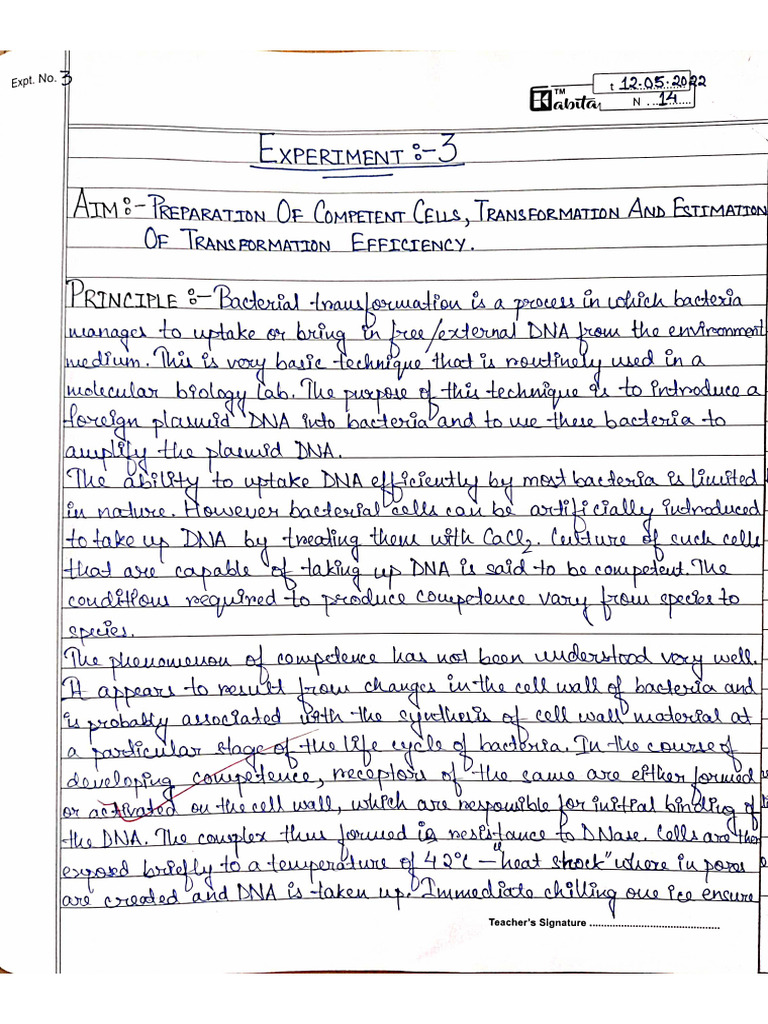 Expt. No. 3
TM
Kabita
: 12.05.2022
N ...14....
EXPERIMENT :- 3
AIM :- PREPARATION OF COMPETENT CELLS, TRANSFORMATION AND ESTIMATION
OF TRANSFORMATION EFFICIENCY.
PRINCIPLE :- Bacterial transformation is a process in which bacteria
manages to uptake or bring in free/external DNA from the environment
medium. This is very basic technique that is routinely used in a
molecular biology lab. The purpose of this technique is to introduce a
foreign plasmid DNA into bacteria and to use these bacteria to
amplify the plasmid DNA.
The ability to uptake DNA efficiently by most bacteria is limited
in nature. However bacterial cells can be artificially introduced
to take up DNA by treating them with CaCl2. Culture of such cells
that are capable of taking up DNA is said to be competent. The
conditions required to produce competence vary from species to
species.
The phenomenon of competence has not been understood very well.
It appears to result from changes in the cell wall of bacteria and
is probably associated with the synthesis of cell wall material at
a particular stage of the life cycle of bacteria. In the course of
developing competence, receptors of the same are either formed
or activated on the cell wall, which are responsible for initial binding of
the DNA. The complex thus formed is resistance to DNase. Cells are then
exposed briefly to a temperature of 42°C - "heat shock" where in pores
are created and DNA is taken up. Immediate chilling one ice ensure
Teacher's Signature ..........................................